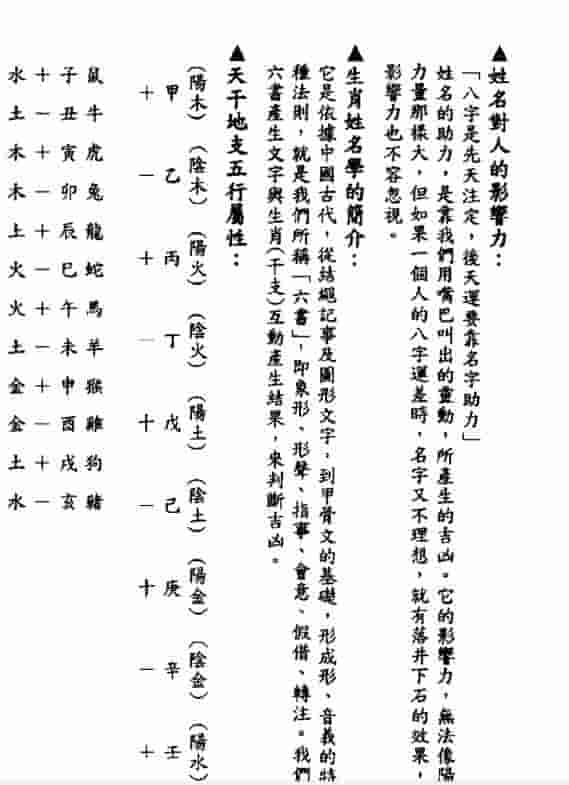 ▲姓名對人的影響力：
「八字是先天注定，後天運要靠名字助力」
姓名的助力，是靠我們用嘴巴叫出的靈動，所產生的吉凶。它的影響力，無法像陽
力量那樣大，但如果一個人的八字運差時，名字又不理想，就有落井下石的效果，
影響力也不容忽視。
▲生肖姓名學的簡介：
它是依據中國古代，從結繩記事及圖形文字，到甲骨文的基礎，形成形、音義的特
種法則，就是我們所稱「六書」，即象形、形聲、指事、會意、假借、轉注。我們
六書產生文字與生肖(干支)互動產生結果，來判斷吉凶。
▲天干地支五行屬性：
(陽木) (陰木) (陽火) (陰火) (陽土) (陰土) (陽金) (陰金) (陽水)
甲 乙 丙 丁 戊 己 庚 辛 壬
＋ － ＋ － ＋ － ＋ － ＋
鼠 牛 虎 兔 龍 蛇 馬 羊 猴 雞 狗 豬
子 丑 寅 卯 辰 巳 午 未 申 酉 戌 亥
＋ － ＋ － ＋ － ＋ － ＋ － ＋ －
水 土 木 木 土 火 火 土 金 金 土 水